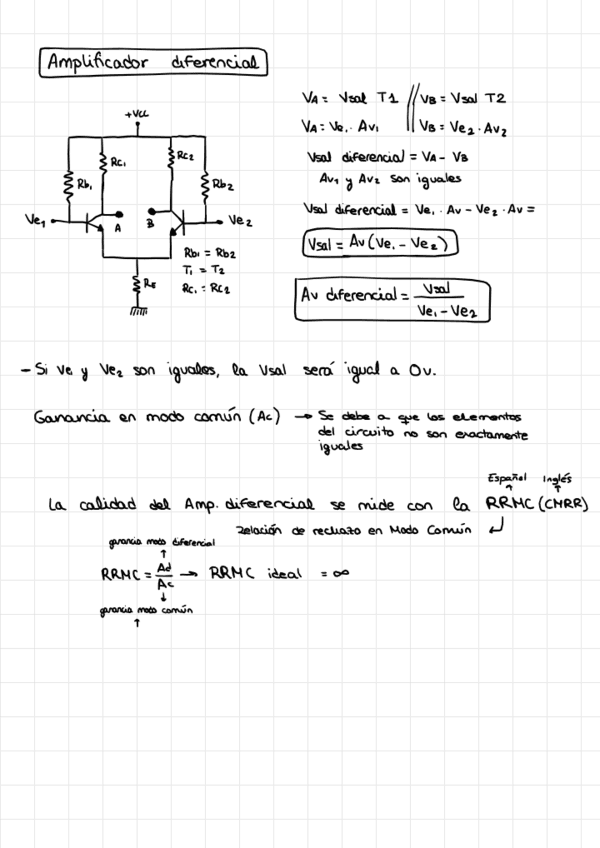 Amplificador diferencial
+Vcc
Rc1
Rc2
Rb1
Rb2
Ve1
A
B
Ve2
RE
Rb1 = Rb2
T1 = T2
Rc1 = Rc2
VA = Vsal T1 // VB = Vsal T2
VA = Ve1 · Av1 || VB = Ve2 · Av2
Vsal diferencial = VA - VB
Av1 y Av2 son iguales
Vsal diferencial = Ve1 · Av - Ve2 · Av =
Vsal = Av (Ve1 - Ve2)
Av diferencial = Vsal / Ve1 - Ve2
- Si Ve1 y Ve2 son iguales, la Vsal será igual a 0v.
Ganancia en modo común (Ac) → Se debe a que los elementos
del circuito no son exactamente
iguales
Español Inglés
La calidad del Amp. diferencial se mide con la RRMC (CMRR)
Relación de rechazo en Modo Común
ganancia modo diferencial
RRMC = Ad / Ac → RRMC ideal = ∞
ganancia modo común